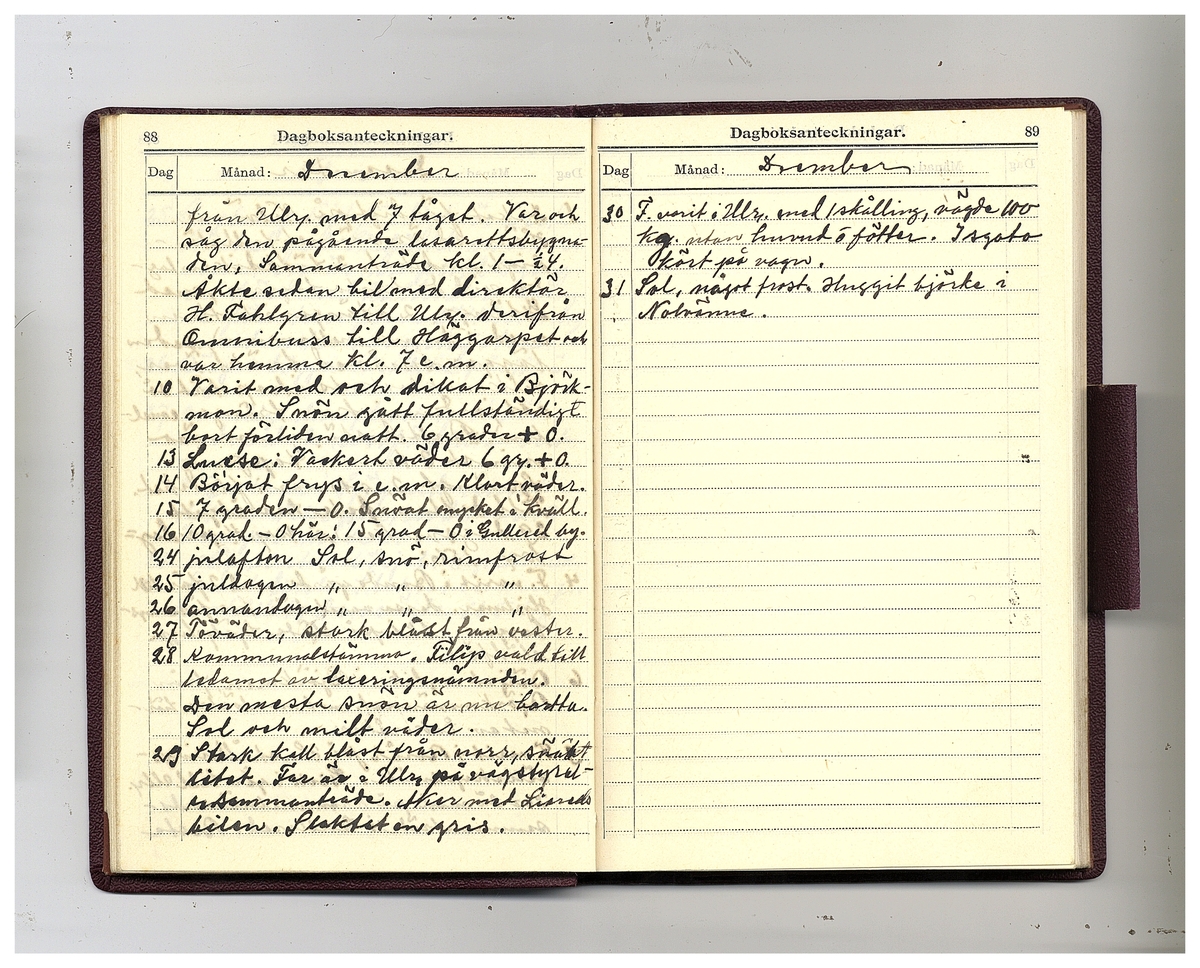 88
Dagboksanteckningar.
Dag
Månad: December
från Ulr. med 7 tåget. Var och
såg den pågående lasarettsbygna-
den, Sammanträde kl. 1 – ½4.
Åkte sedan bil med direktör
H. Fahlgren till Ulr. derifrån
Omnibuss till Häggarpet och
var hemma kl. 7 e.m.
10 Varit med och dikat i Björk-
mon. Snön gått fullständigt
bort förliden natt. 6 grader + 0.
13 Lucse: Vackert väder 6 gr. + 0.
14 Börjat frys i e.m. Klart väder.
15 7 graden – 0. Snöat mycket i kväll.
16 10 grad. – 0 här! 15 grad – 0 i Gullered by.
24 julafton Sol, snö, rimfrost
25 juldagen " " "
26 annandagen " " "
27 Töväder, stark blåst från vester.
28 Kommunalstämma. Filip vald till
ledamot av taxeringsnämnden.
Den mesta snön är nu bortta.
Sol och milt väder.
29 Stark kall blåst från norr, snöat
litet. Far är i Ulr. på vägstyrel-
sesammanträde. Åker med Lisreds
bilen. Slaktat en gris.
Dagboksanteckningar.
89
Dag
Månad: December
30 F. varit i Ulr. med 1 skålling, vägde 100
kg. utan huvud o fötter. Isgata
kört på vagn.
31 Sol, något frost. Huggit björke i